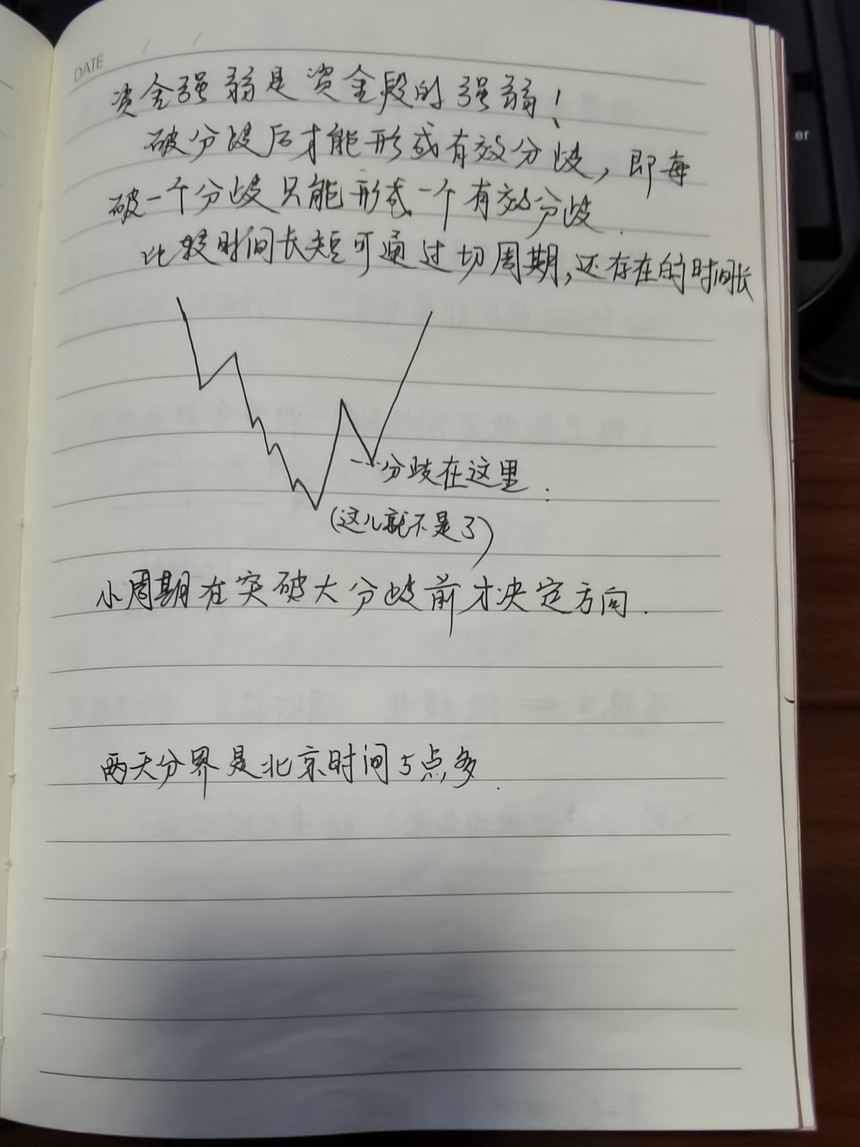 DATE / /
资金强弱是资金段的强弱！
破分歧后才能形成有效分歧，即每
破一个分歧只能形式一个有效分歧.
比较时间长短可通过切周期,还存在的时间长
分歧在这里
(这儿就不是了)
小周期在突破大分歧前才决定方向.
两天分界是北京时间5点多.
er